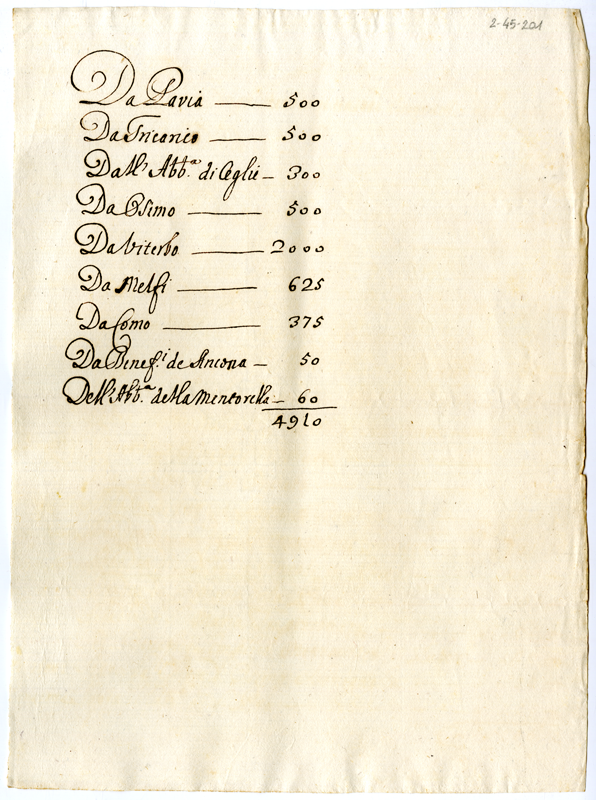 2-45-201
Da Pavia — 500
Da Tricarico — 500
Dall' Abb.ª di Ceglie — 300
Da Osimo — 500
Da Viterbo — 2000
Da Melfi — 625
Da Como — 375
Da Benef.i de Ancona — 50
Dell' Abb.ª della Mentorella — 60
4910